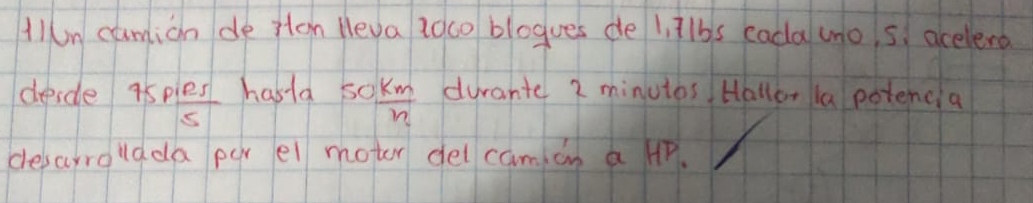 1) Un camión de 7ton lleva 2000 bloques de 1,7lbs cada uno, si acelera
desde 75 pies/s hasta 50 km/h durante 2 minutos. Hallar la potencia
desarrollada por el motor del camión a HP.